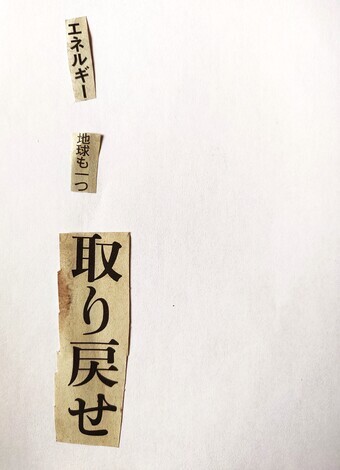 エネルギー
地球も一つ
取り戻せ